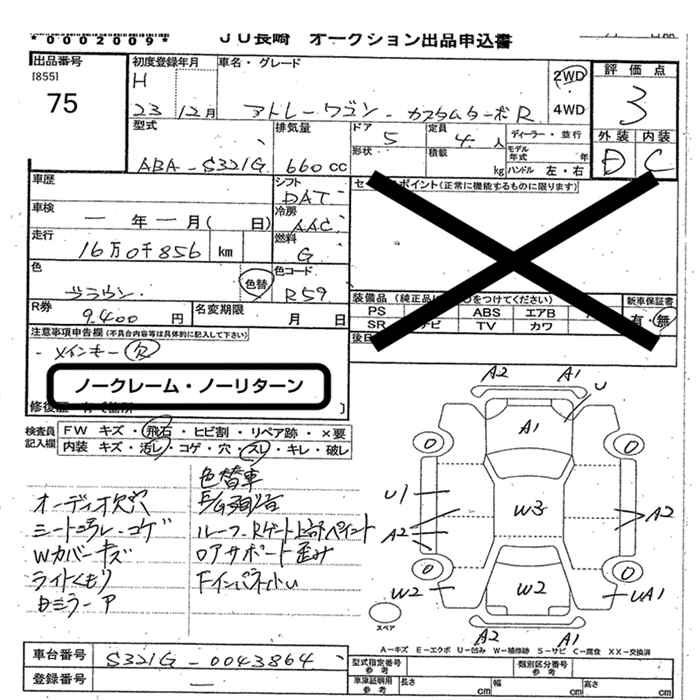 *0002009*
JU長崎 オークション出品申込書
出品番号
[855]
75
初度登録年月
H
23 12月
車名・グレード
アトレーワゴン カスタムターボR
2WD
4WD
評価点
3
外装 内装
D C
型式
ABA-S321G
排気量
660cc
ドア 5
形状
定員 4人
積載 kg
ディーラー・並行
モデル年式 年
ハンドル 左・右
車歴
シフト
DAT
車検
一年一月( 日)
冷房
AAC
走行
16万0千856 km
燃料
G
色
ブラウン
色替
色コード
R59
R券
9,400円
名変期限
月 日
ポイント(正常に機能するものに限ります)
装備品(純正品 をつけてください)
PS ABS エアB
SR ナビ TV カワ
新車保証書
有・無
注意事項申告欄(不具合内容等は具体的に記入して下さい)
・メインキー欠
ノークレーム・ノーリターン
検査員記入欄
FW キズ・飛石・ヒビ割・リペア跡・×要
内装 キズ・汚レ・コゲ・穴・スレ・キレ・破レ
色替車
オーディオ欠穴
シートヨゴレ・コゲ
ルーフ、Rゲート上部ペイント
Wカバーキズ
ロアサポート歪み
ライトくもり
A2 A1
U
A1
U1
W3
A2
A2
W2
W2
UA1
A2 A1
スペア
A-キズ E-エクボ U-凹み W-補修跡 S-サビ C-腐食 XX-交換済
車台番号
S321G-0043864
登録番号
型式指定番号 参考
類別区分番号 参考
車庫証明用 参考
長さ cm
幅 cm
高さ cm